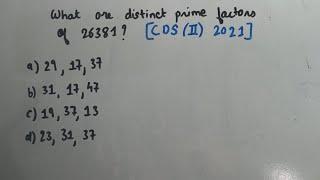 What are distinct prime factors
of 26381? [CDS (II) 2021]
a) 29, 17, 37
b) 31, 17, 47
c) 19, 37, 13
d) 23, 31, 37